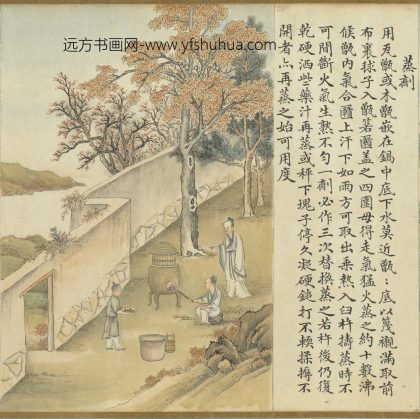 远方书画网-www.yfshuhua.com
蒸劑
用瓦甑或木甑嵌在鍋中底下水莫近甑〻底以篾襯滿取前
布裹毬子入甑箬圈盖之四圍毋得走氣猛火蒸之約十數沸
候甑内氣合圈上汗下如雨方可取出乗熱入臼杵擣蒸時不
可間斷火氣生熟不勻一劑必作三次替換蒸之若杵後仍復
乾硬洒些藥汁再蒸或秤下塊子停久凝硬鎚打不輭揉搦不
開者亦再蒸之始可用度